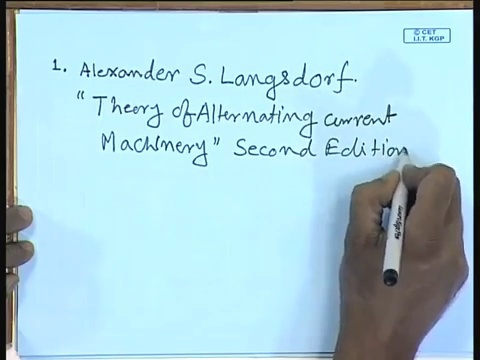 © CET
I.I.T. KGP
1. Alexander S. Langsdorf.
"Theory of Alternating current
Machinery" Second Edition